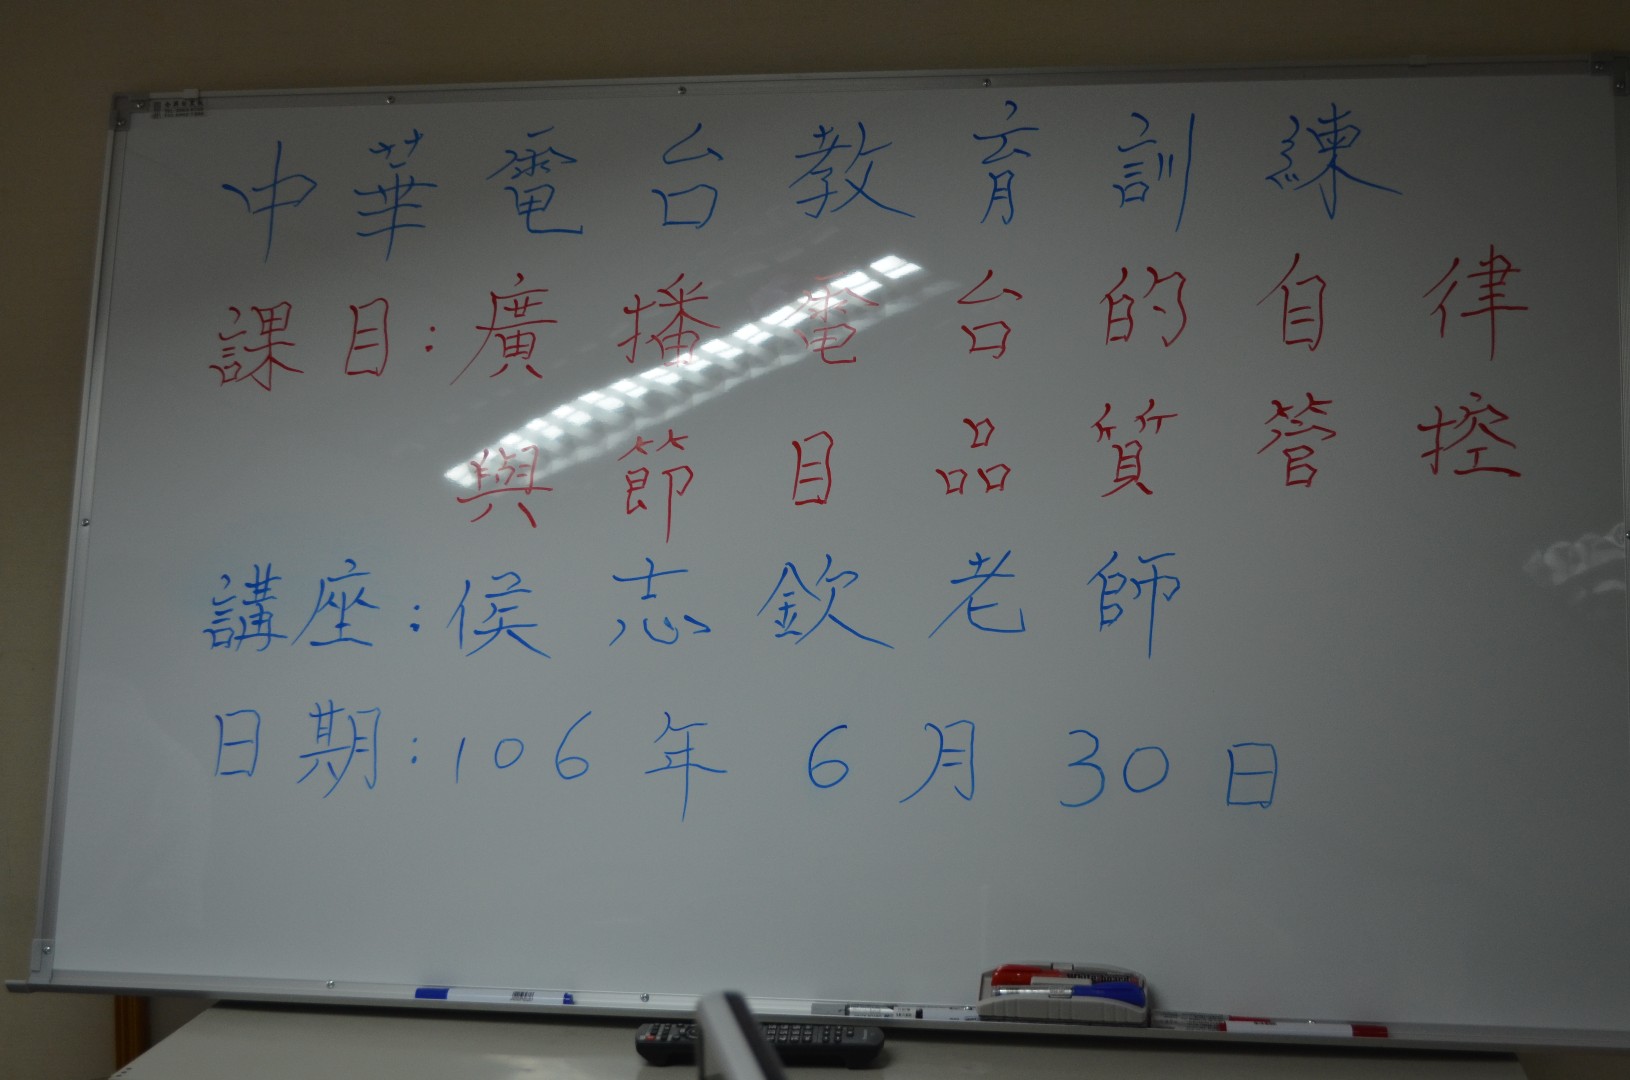 中華電台教育訓練
課目:廣播電台的自律
與節目品質管控
講座:侯志欽老師
日期:106年6月30日